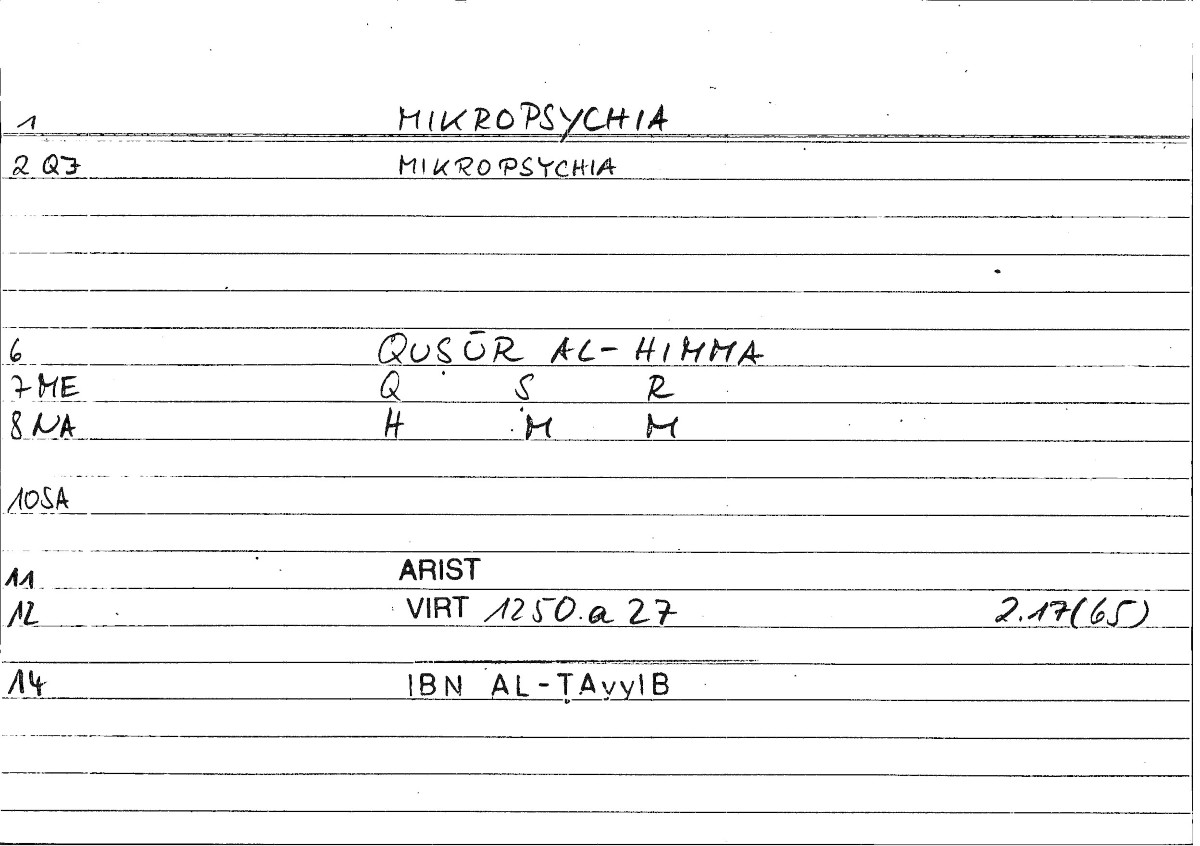 1 MIKROPSYCHIA
2 QZ MIKROPSYCHIA
6 QUṢŪR AL-HIMMA
7 ME Q Ṣ R
8 NA H M M
10 SA
11 ARIST
12 VIRT 1250.a 27 2.17(65)
14 IBN AL-ṬAyyIB